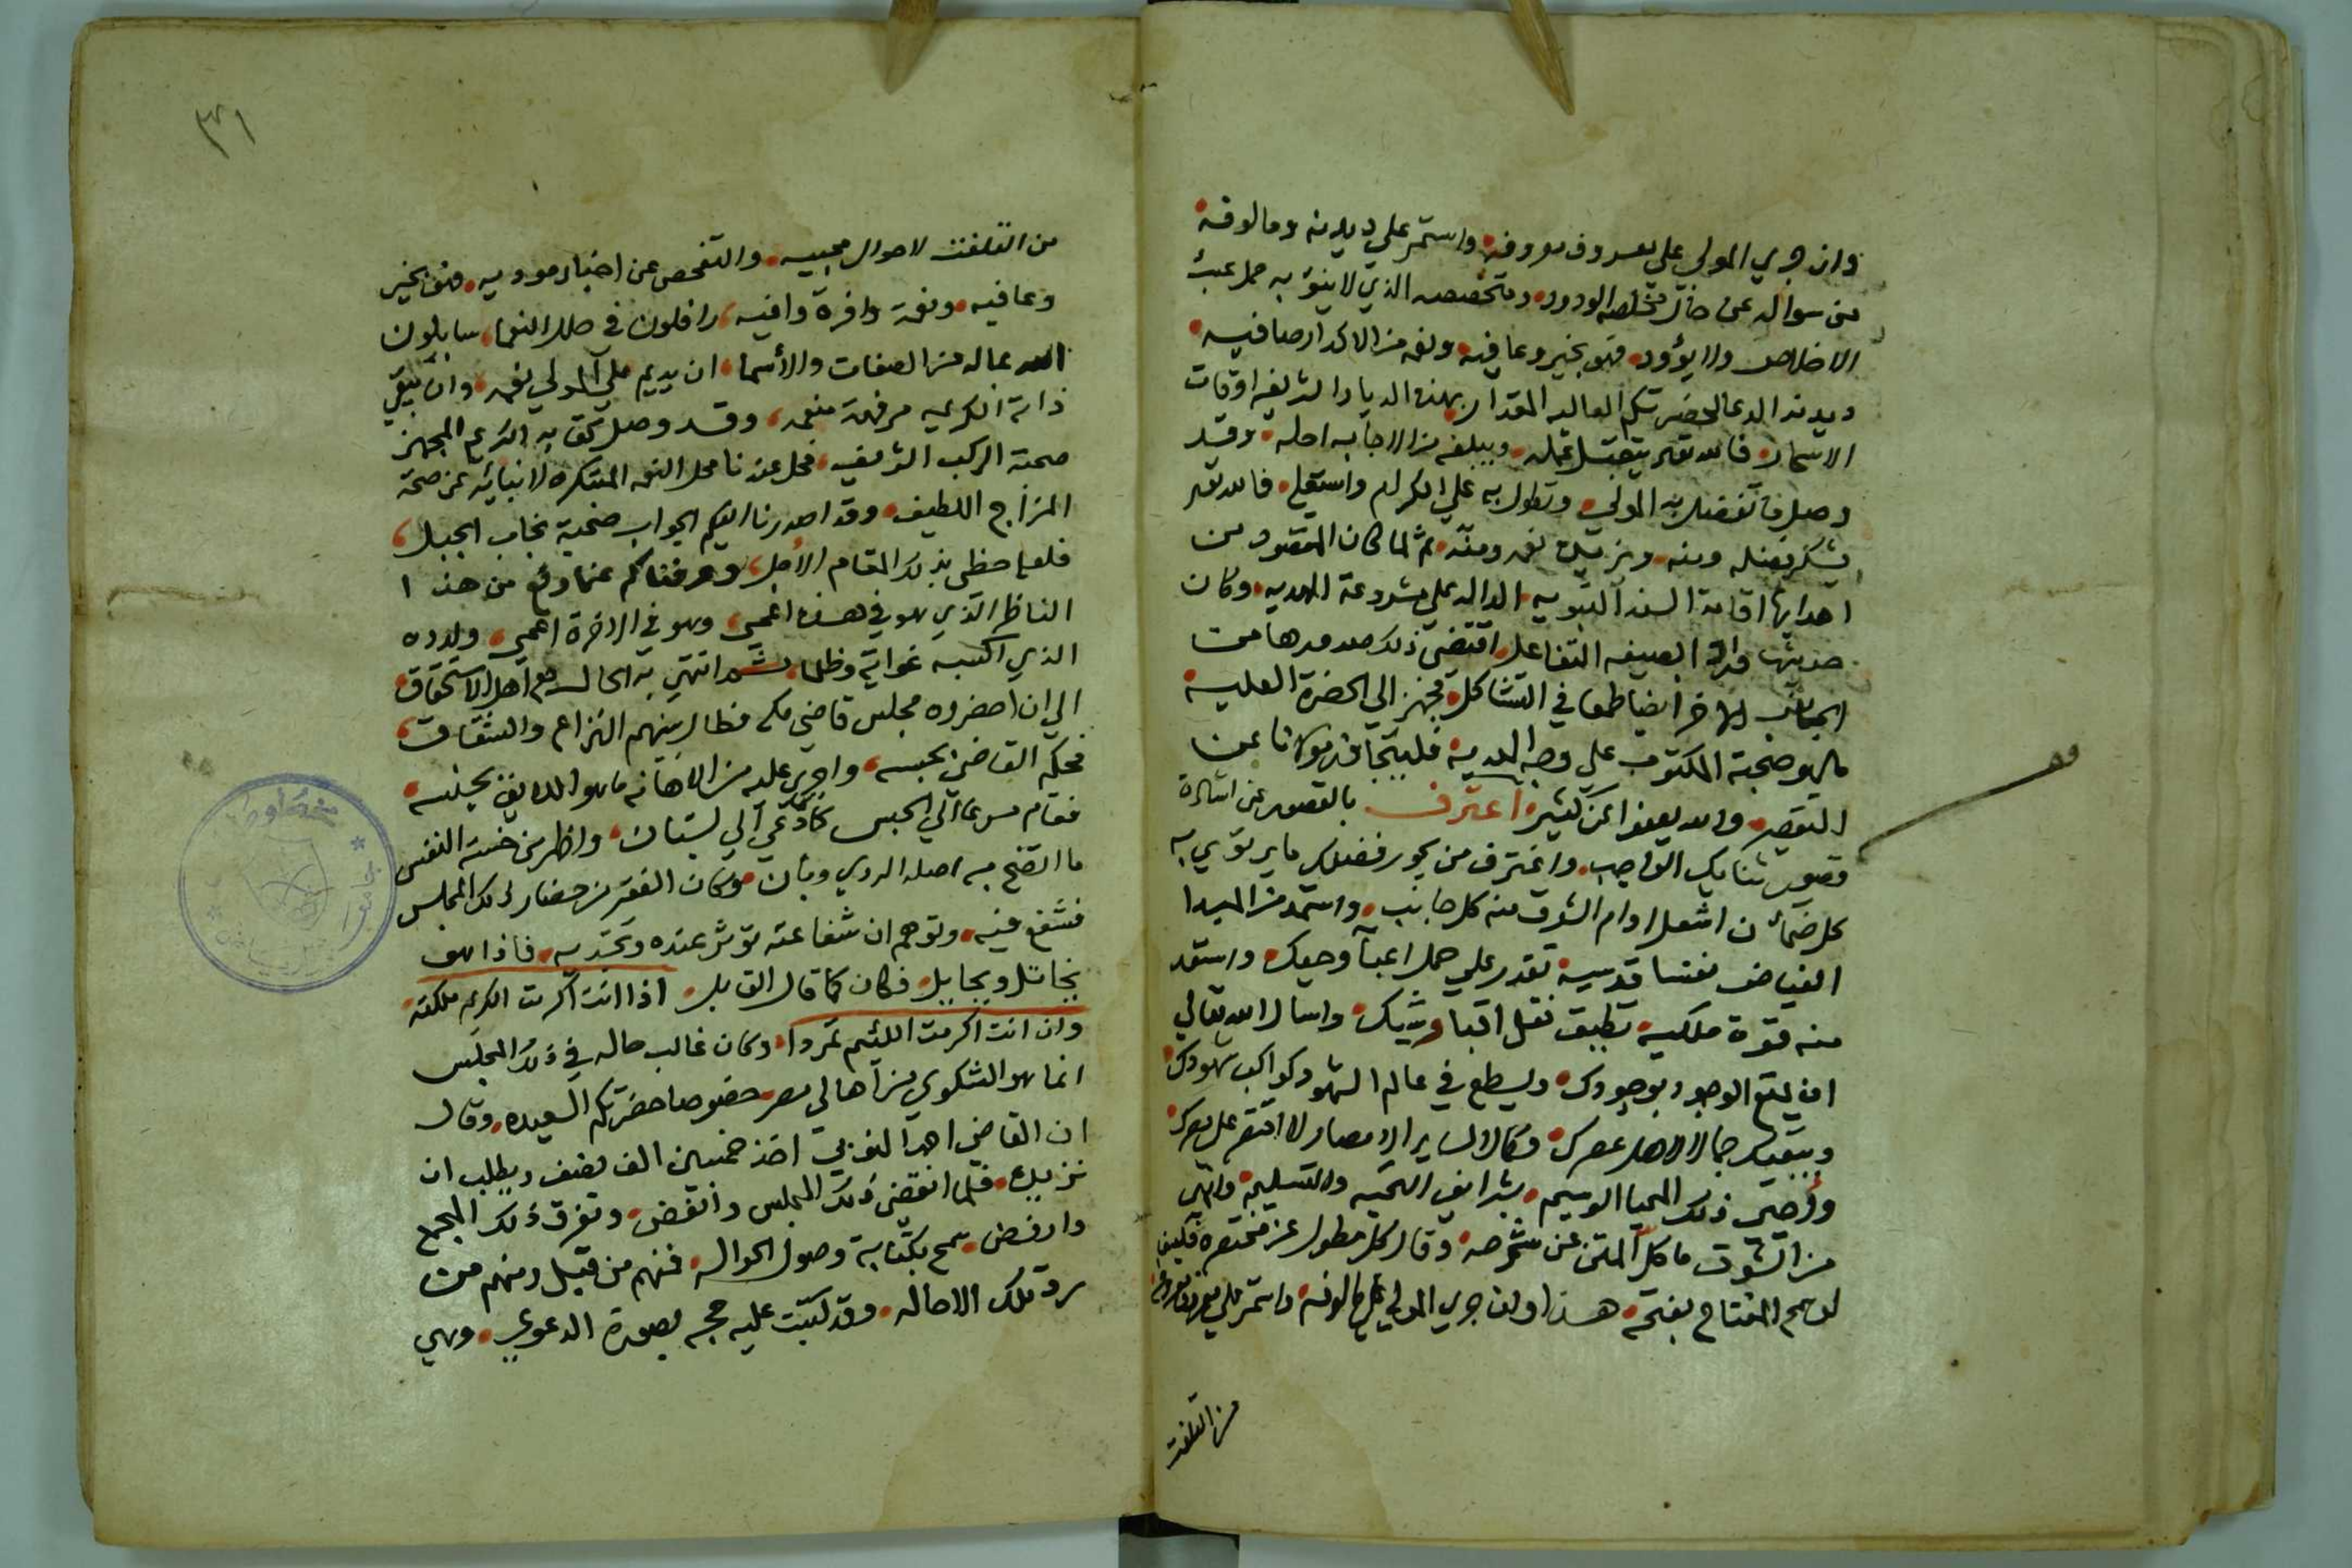 وان جري المولي علي معروف معروفه واستمر علي ديدنه ومالوفه
من سواله عن حال مخلصه الودود ومتخصصه الذي لا ينؤ به حمل عبئ
الاخلاص ولا يؤود فهو بخير وعافيه ونعمه من الاكدار صافيه
وديدنه الدعا لحضرتكم العاليه المقدار بهذه الديار الشريفه اوقات
الاسحار فالله تعالي يتقبل عمله ويبلغه من الاجابه امله وقد
وصل ما تفضل به المولي وتطول به علي الكرام واستعلي فالله تعالي
يشكر فضله ومنه ويزيل نعمه ومنه ثم لما كان المقصود من
اهدايها اقامة السنه النبويه الداله علي مشروعة الهديه وكان
حديثها وارد ابصيغه التفاعل اقتضي ذلك صدورها من
الجانب الاخر ايضا طمعا في التشاكل فجهز الي الحضرة العليه
ما هو صحبة المكتوب علي وجه الهديه فليتجاوز مولانا عن
التقصير والله يعفوا عن كثير اعترف بالقصور عن اشادة
قصور ثنايك الواجب واغترف من بحور فضلك ما يرتوي به
كل ضمآن اشعل اوام الشوق منه كل جانب واستمد من المبدا
الفياض نفسا قدسيه تقدر علي حمل اعبآ وحيك واستعد
منه قوة ملكيه تطيق نقل اقبا وشيك واسال الله تعالي
ان يمتع الوجود بوجودك ويسطع في عالم الشهود كواكب شهودك
ويبقيك جمالا لاهل عصرك وكمالا لساير الامصار لا اقتصر علي مصرك
وأوصي ذلك المحيا الوسيم بشرايف التحيه والتسليم وانهي
من الشوق ما كل المتن عن شرحه وقال كل مطول عن مختصره فكيف
لوهم المفتاح بفتحه هذا وان جري المولي علي مالوفه واستمر علي معروفه
من التلفت
٣٦١
من التلفت لاحوال محبيه والتفحص عن اخبار مودديه فهو بخير
وعافيه ونعمة وافرة وافيه رافلون في حلل النعما سايلون
الله بماله من الصفات والأسما ان يديم علي المولي نعمه وان يبقي
ذاته الكريمه مرفهة منعمه وقد وصل كتابه الكريم المجهز
صحبة الركب الشريف فحل عندنا محل النعمه المتكره لانبائه عن صحة
المزاج اللطيف وقد اصدرنا اليكم الجواب صحبة نجاب الجبل
فلعله حظي بذلك المقام الأجل وعرفناكم عما وقع من هذا
الناظر الذي هو في هذه اعمي وهو في الاخرة اعمي وولده
الذي اكسبه غواية وظلما ثم انتهي به الحال مع اهل الاستحقاق
الي ان احضروه مجلس قاضي مكه فطال بينهم النزاع والشقاق
فحكم القاضي بحبسه واجري عليه من الاهانة ما هو اللايق بجنسه
فقام مسرعا الي الحبس كأنه دعي الي بستان واظهر من خسة النفس
ما اتضح به اصله الردي وبان وكان الفقير من حضار ذلك المجلس
فشفع فيه وتوهم ان شفاعته تؤثر عنده وتجديه فاذا هو
يخاتل ويخايل فكان كما قال القايل اذا انت اكرمت الكريم ملكته
وان انت اكرمت اللئيم تمردا وكان غالب حاله في ذلك المجلس
انما هو الشكوي من اهالي مصر خصوصا حضرتكم السعيده وقال
ان القاضي اهدا لنوبي اخذ خمسين الف نصف ويطلب ان
نزيده فلما انقضي ذلك المجلس وانقض وتفرق ذلك المجمع
وارفض سمح بكتابة وصول الحواله فمنهم من قبل ومنهم من
رد تلك الاحاله وقد كتبت عليه حجه بصورة الدعوي وهي